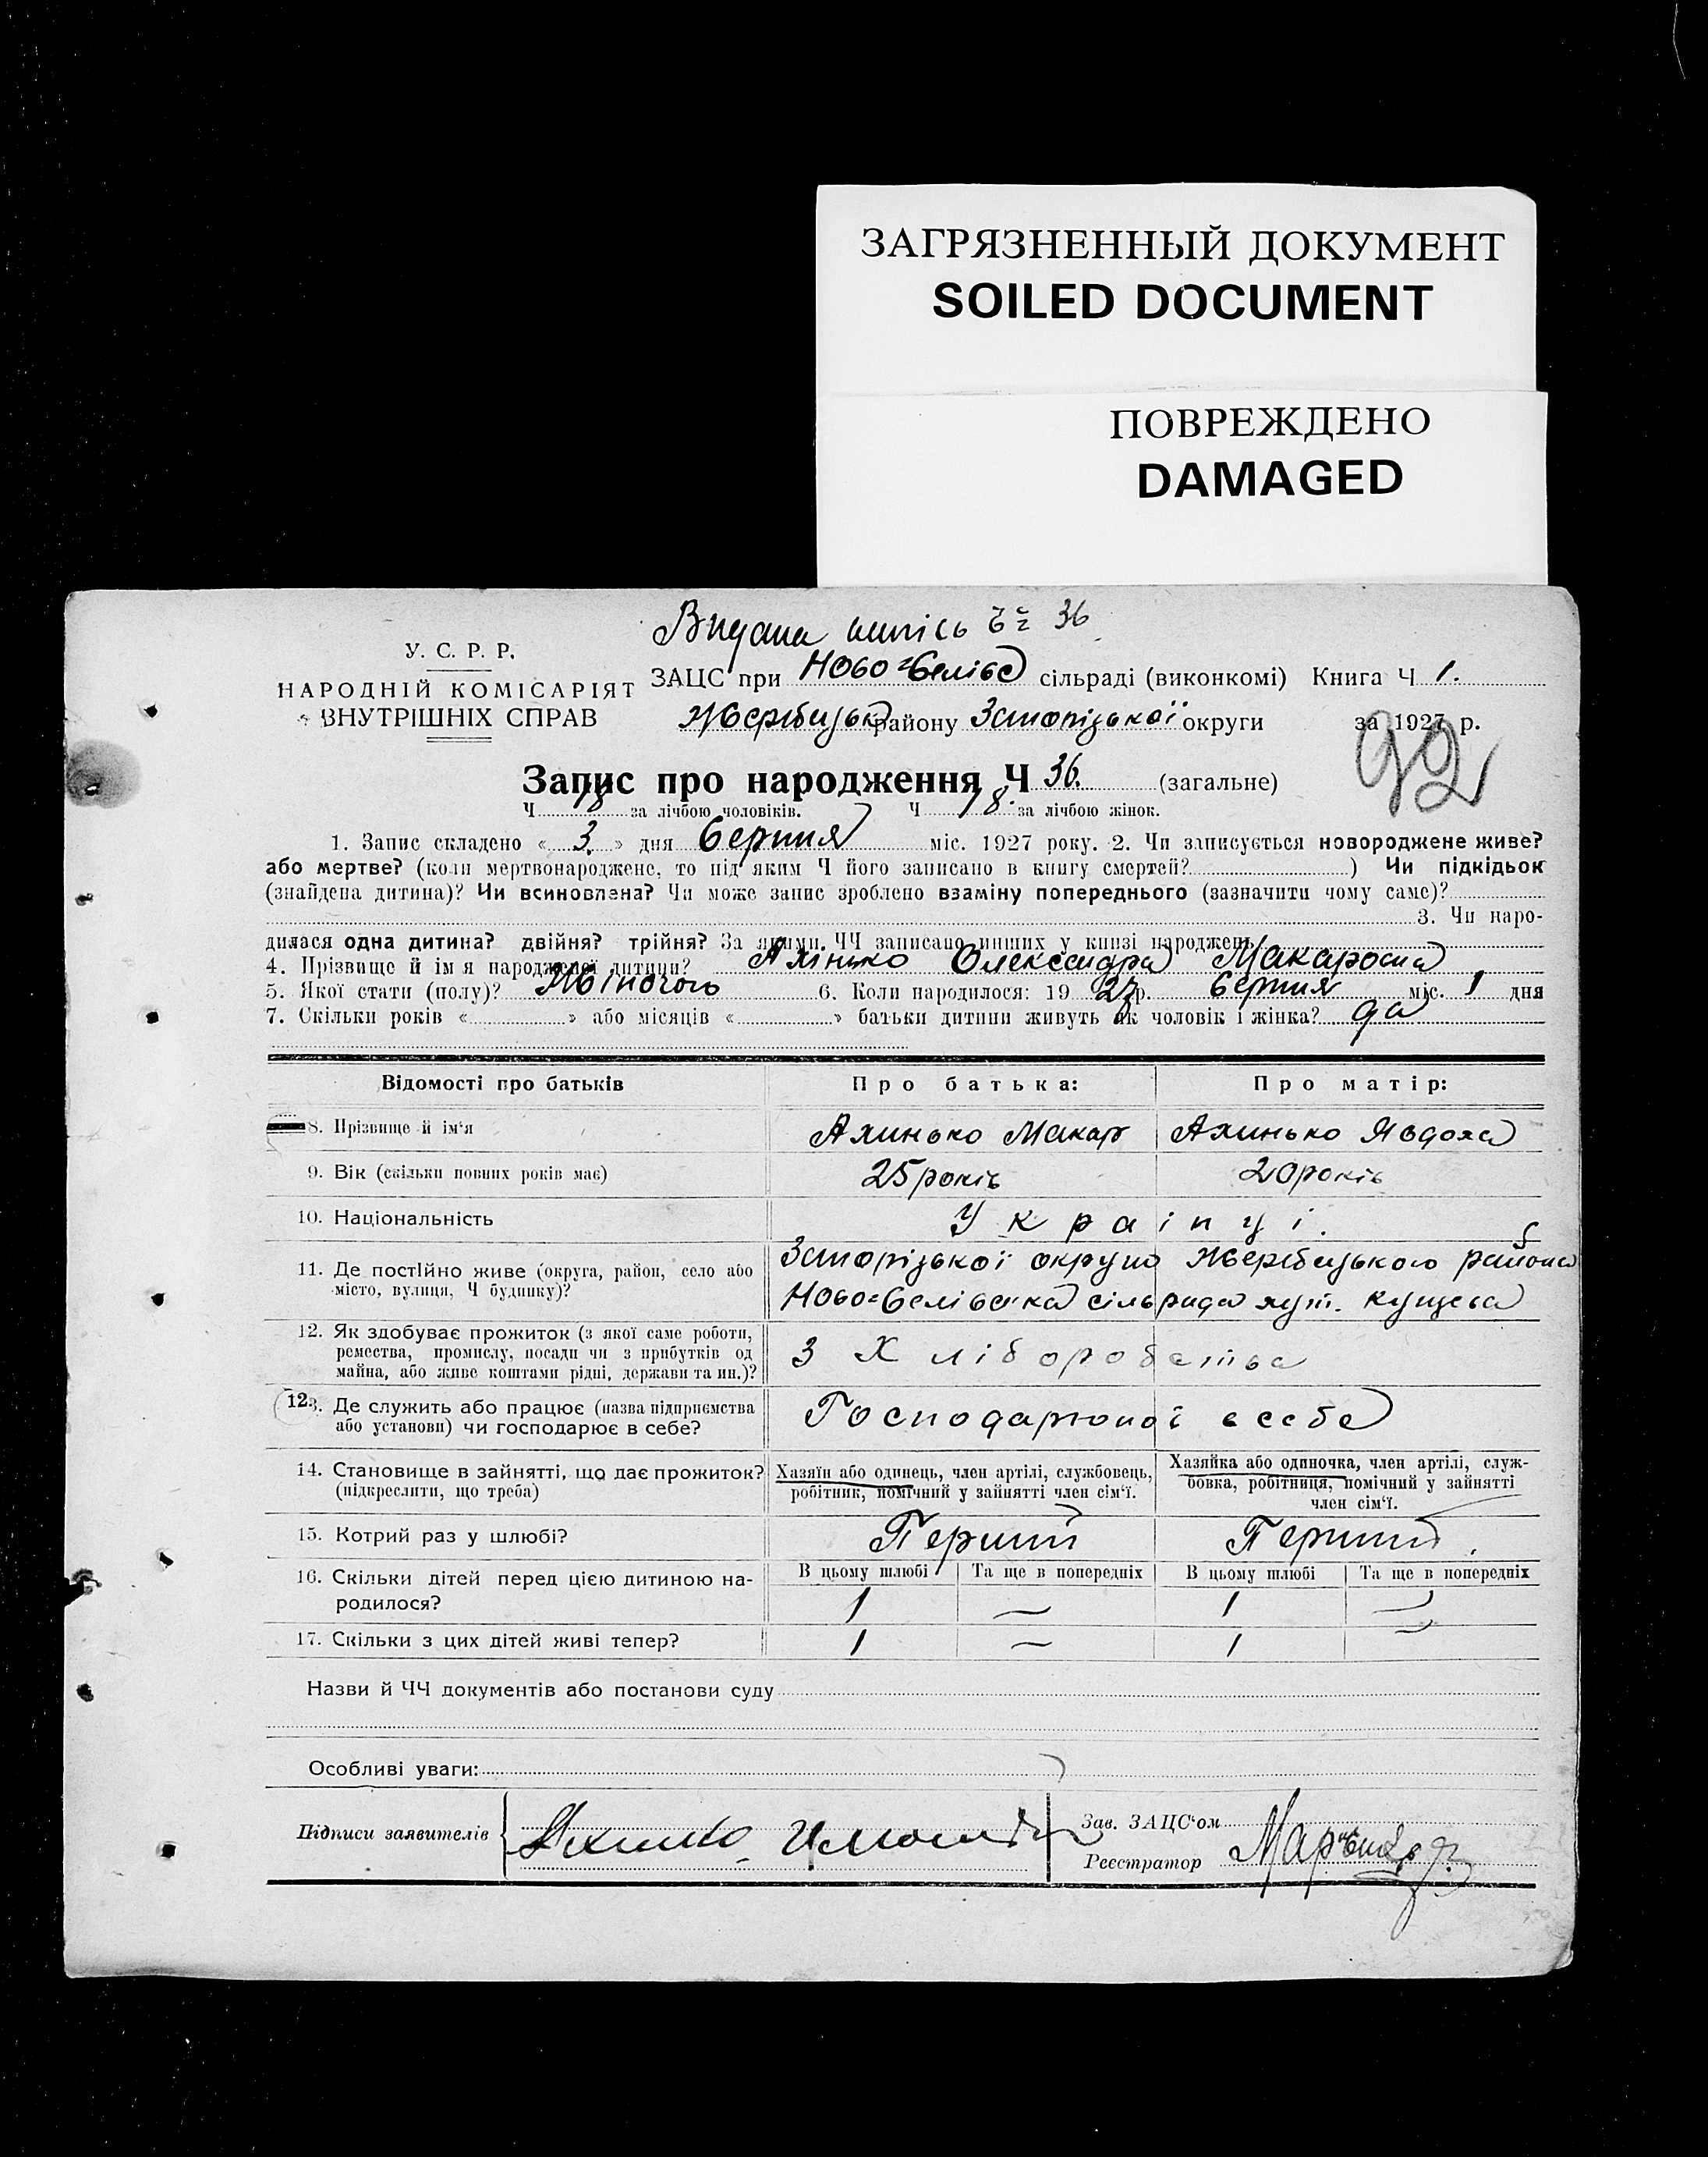 ЗАГРЯЗНЕННЫЙ ДОКУМЕНТ
SOILED DOCUMENT
ПОВРЕЖДЕНО
DAMAGED
Видана випісь 36
У. С. Р. Р.
НАРОДНІЙ КОМІСАРІЯТ
ВНУТРІШНІХ СПРАВ
ЗАЦС при сільраді (виконкомі) Книга Ч 1.
району Запорізької округи за 1927 р.
92
Запис про народження Ч 36. (загальне)
Ч 18 за лічбою чоловіків. Ч 18. за лічбою жінок.
1. Запис складено « 3. » дня Серпня міс. 1927 року. 2. Чи записується новороджене живе?
або мертве? (коли мертвонароджене, то під яким Ч його записано в книгу смертей? ) Чи підкідьок
(знайдена дитина)? Чи всиновлена? Чи може запис зроблено взаміну попереднього (зазначити чому саме)?
3. Чи наро-
дилася одна дитина? двійня? трійня? За якими ЧЧ записано инших у книзі народжень
4. Прізвище й ім я народженої дитини? Ахінько Олександра Макаровна
5. Якої стати (полу)? Жіночого 6. Коли народилося: 19 27 р. Серпня міс. 1 дня
7. Скільки років « » або місяців « » батьки дитини живуть як чоловік і жінка? да
Відомості про батьків Про батька: Про матір:
8. Прізвище й ім'я Ахинько Макар Ахинько Явдоха
9. Вік (скільки повних років має) 25 років 20 років
10. Національність Украінці.
11. Де постійно живе (округа, район, село або Запорізької округи Жеребецького района
місто, вулиця, Ч будинку)? сільрада хут. Кущева
12. Як здобуває прожиток (з якої саме роботи,
ремества, промислу, посади чи з прибутків од З Хліборобства
майна, або живе коштами рідні, держави та ин.)?
12з. Де служить або працює (назва підприємства
або установи) чи господарює в себе? в себе
14. Становище в зайнятті, що дає прожиток? Хазяїн або одинець, член артілі, службовець, Хазяйка або одиночка, член артілі, служ-
(підкреслити, що треба) робітник, помічний у зайнятті член сім'ї. бовка, робітниця, помічний у зайнятті
член сім'ї.
15. Котрий раз у шлюбі? Перший Перший
16. Скільки дітей перед цією дитиною на- В цьому шлюбі Та ще в попередніх В цьому шлюбі Та ще в попередніх
родилося? 1 — 1 —
17. Скільки з цих дітей живі тепер? 1 — 1 —
Назви й ЧЧ документів або постанови суду
Особливі уваги:
Підписи заявителів Зав. ЗАЦС'ом
Реєстратор